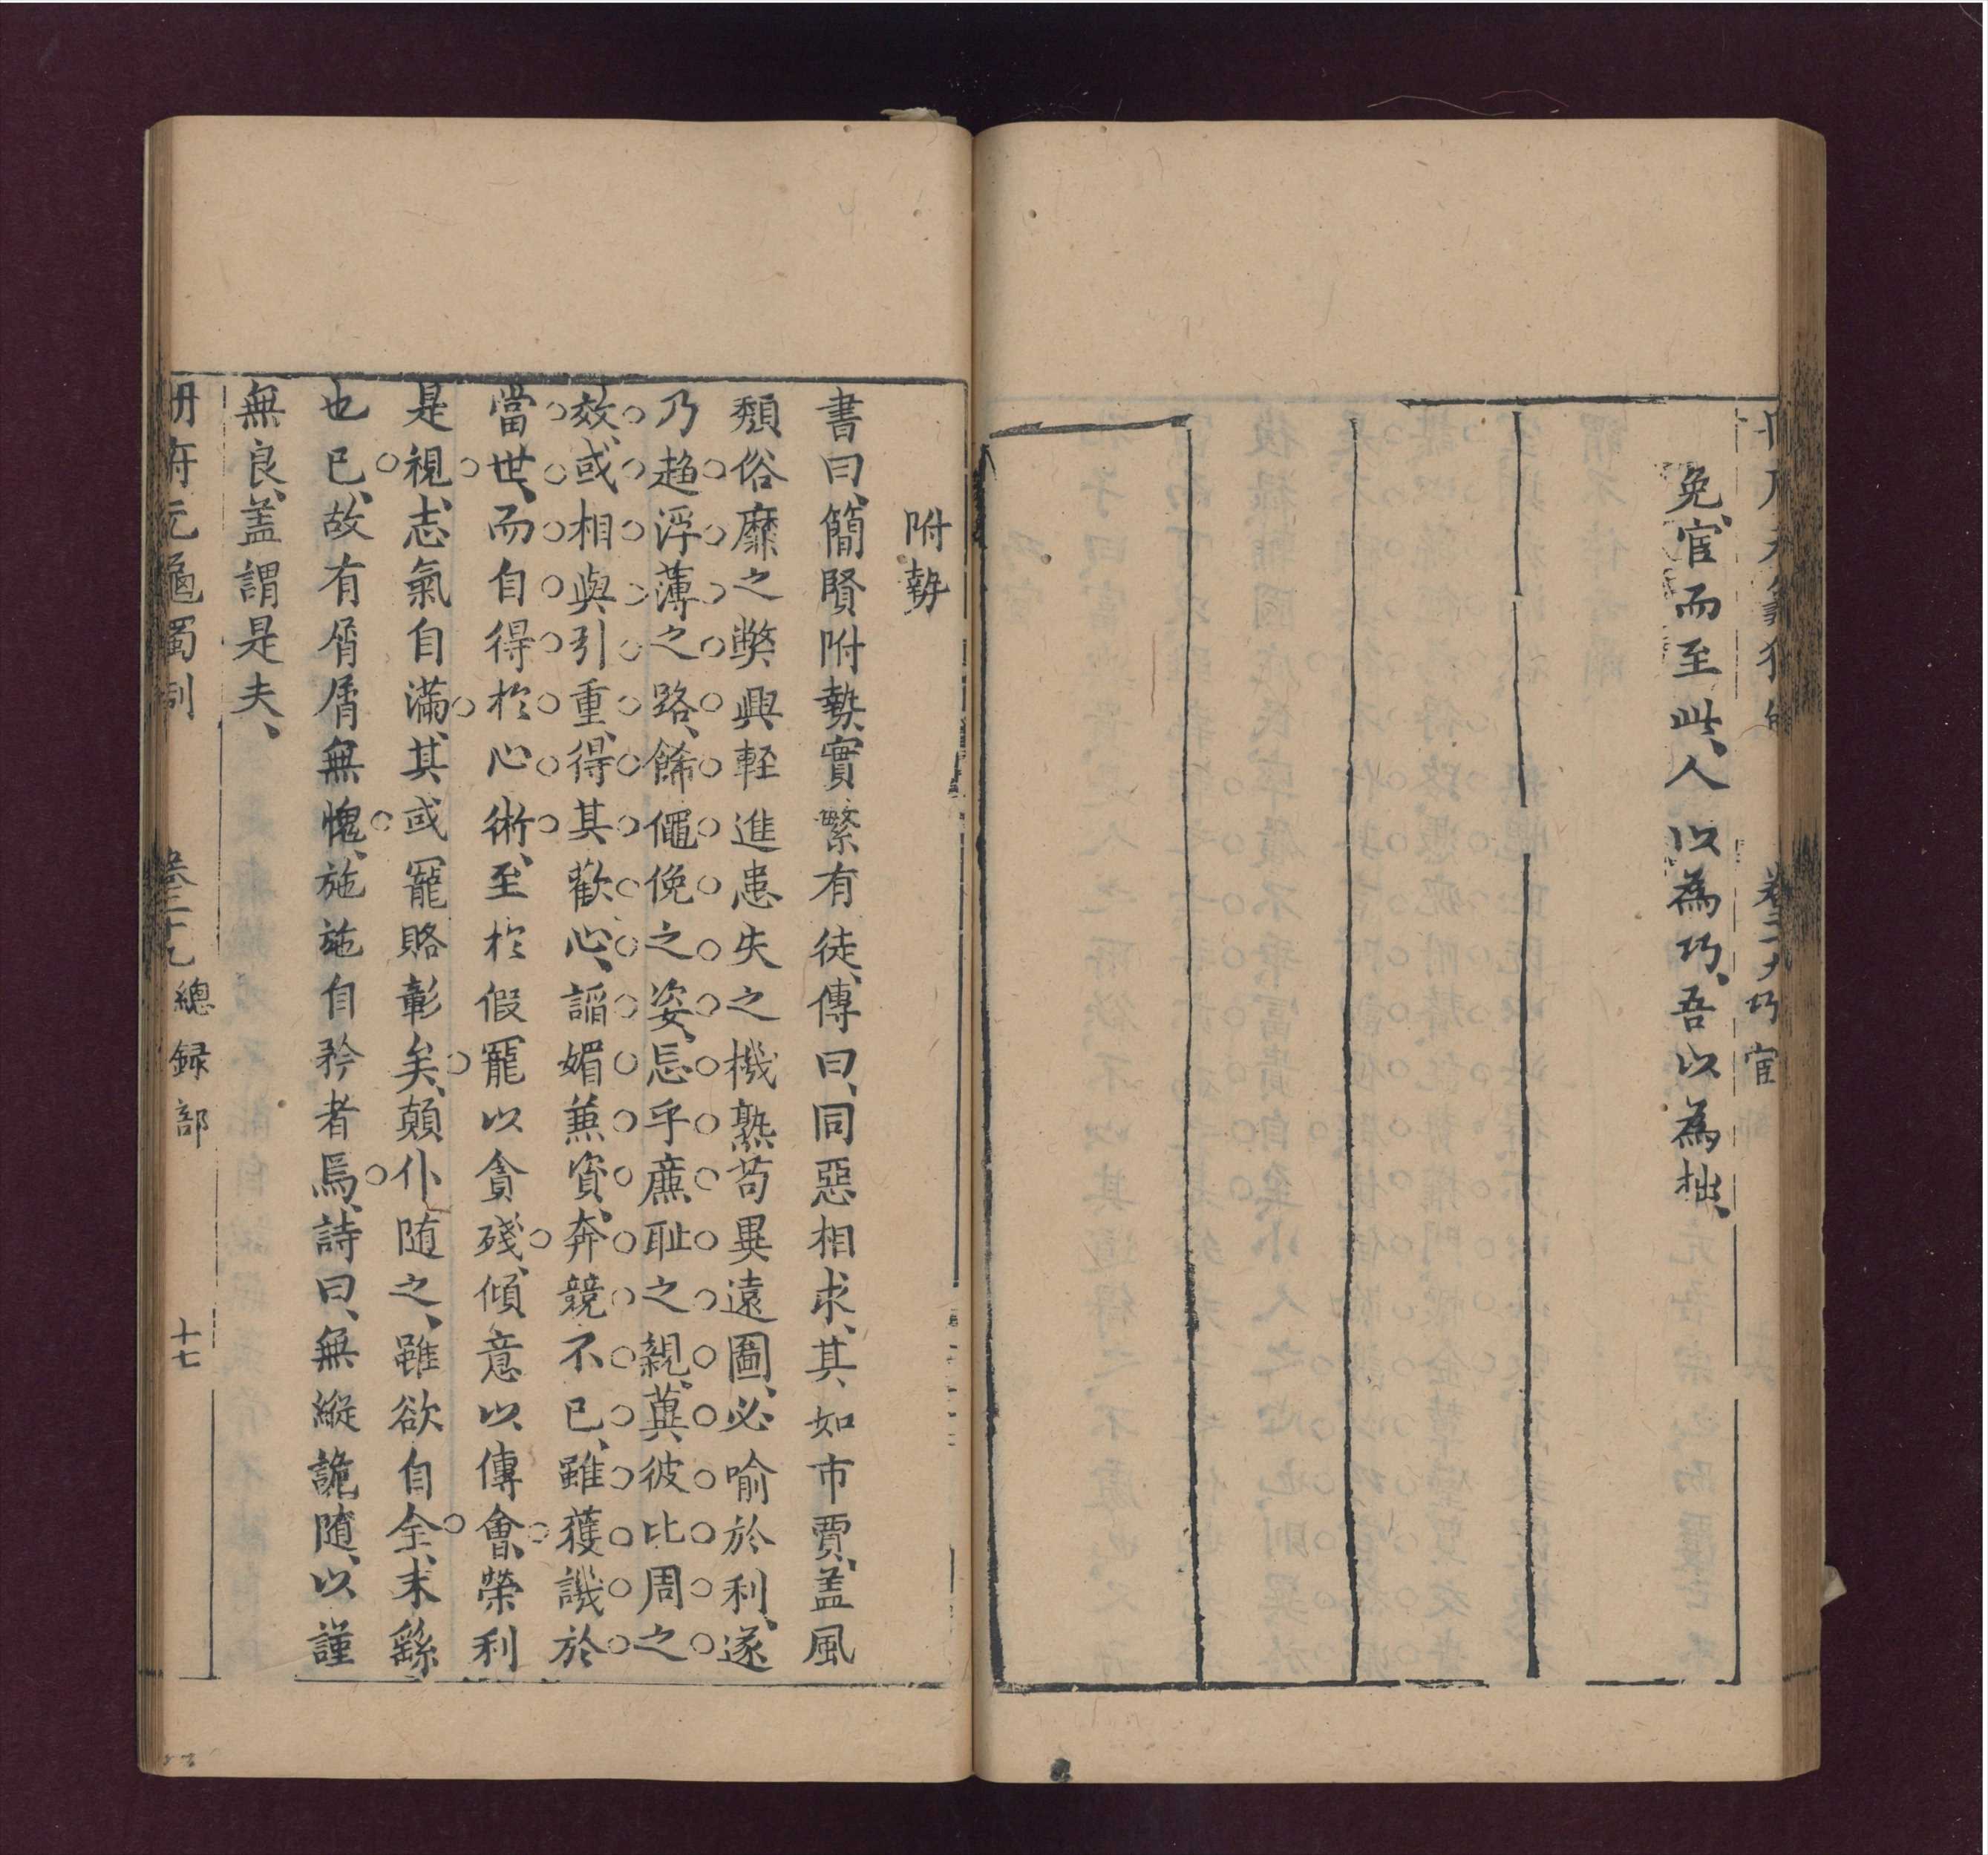 免官而至此、人以為巧、吾以為拙、
卷二十九 巧宦
附勢
書曰、簡賢附勢、實繁有徒、傳曰、同惡相求、其如市賈、盖風
頽俗靡之獘興、軽進患失之機熟、苟異遠圖、必喻於利、遂
乃趨浮薄之路、餙僶俛之姿、忘乎亷耻之親、蓂彼比周之
效、或相與引重、得其歡心、謟媚兼資、奔競不已、雖獲譏於
當世、而自得於心術、至於假寵以貪殘、傾意以傳會、榮利
是視、志氣自滿、其或寵賂彰矣、顛仆随之、雖欲自全、末繇
也已、故有屑屑無愧、施施自矜者焉、詩曰、無縱詭随、以謹
無良、盖謂是夫、
冊府元龜獨制 卷二十九 總録部 十七